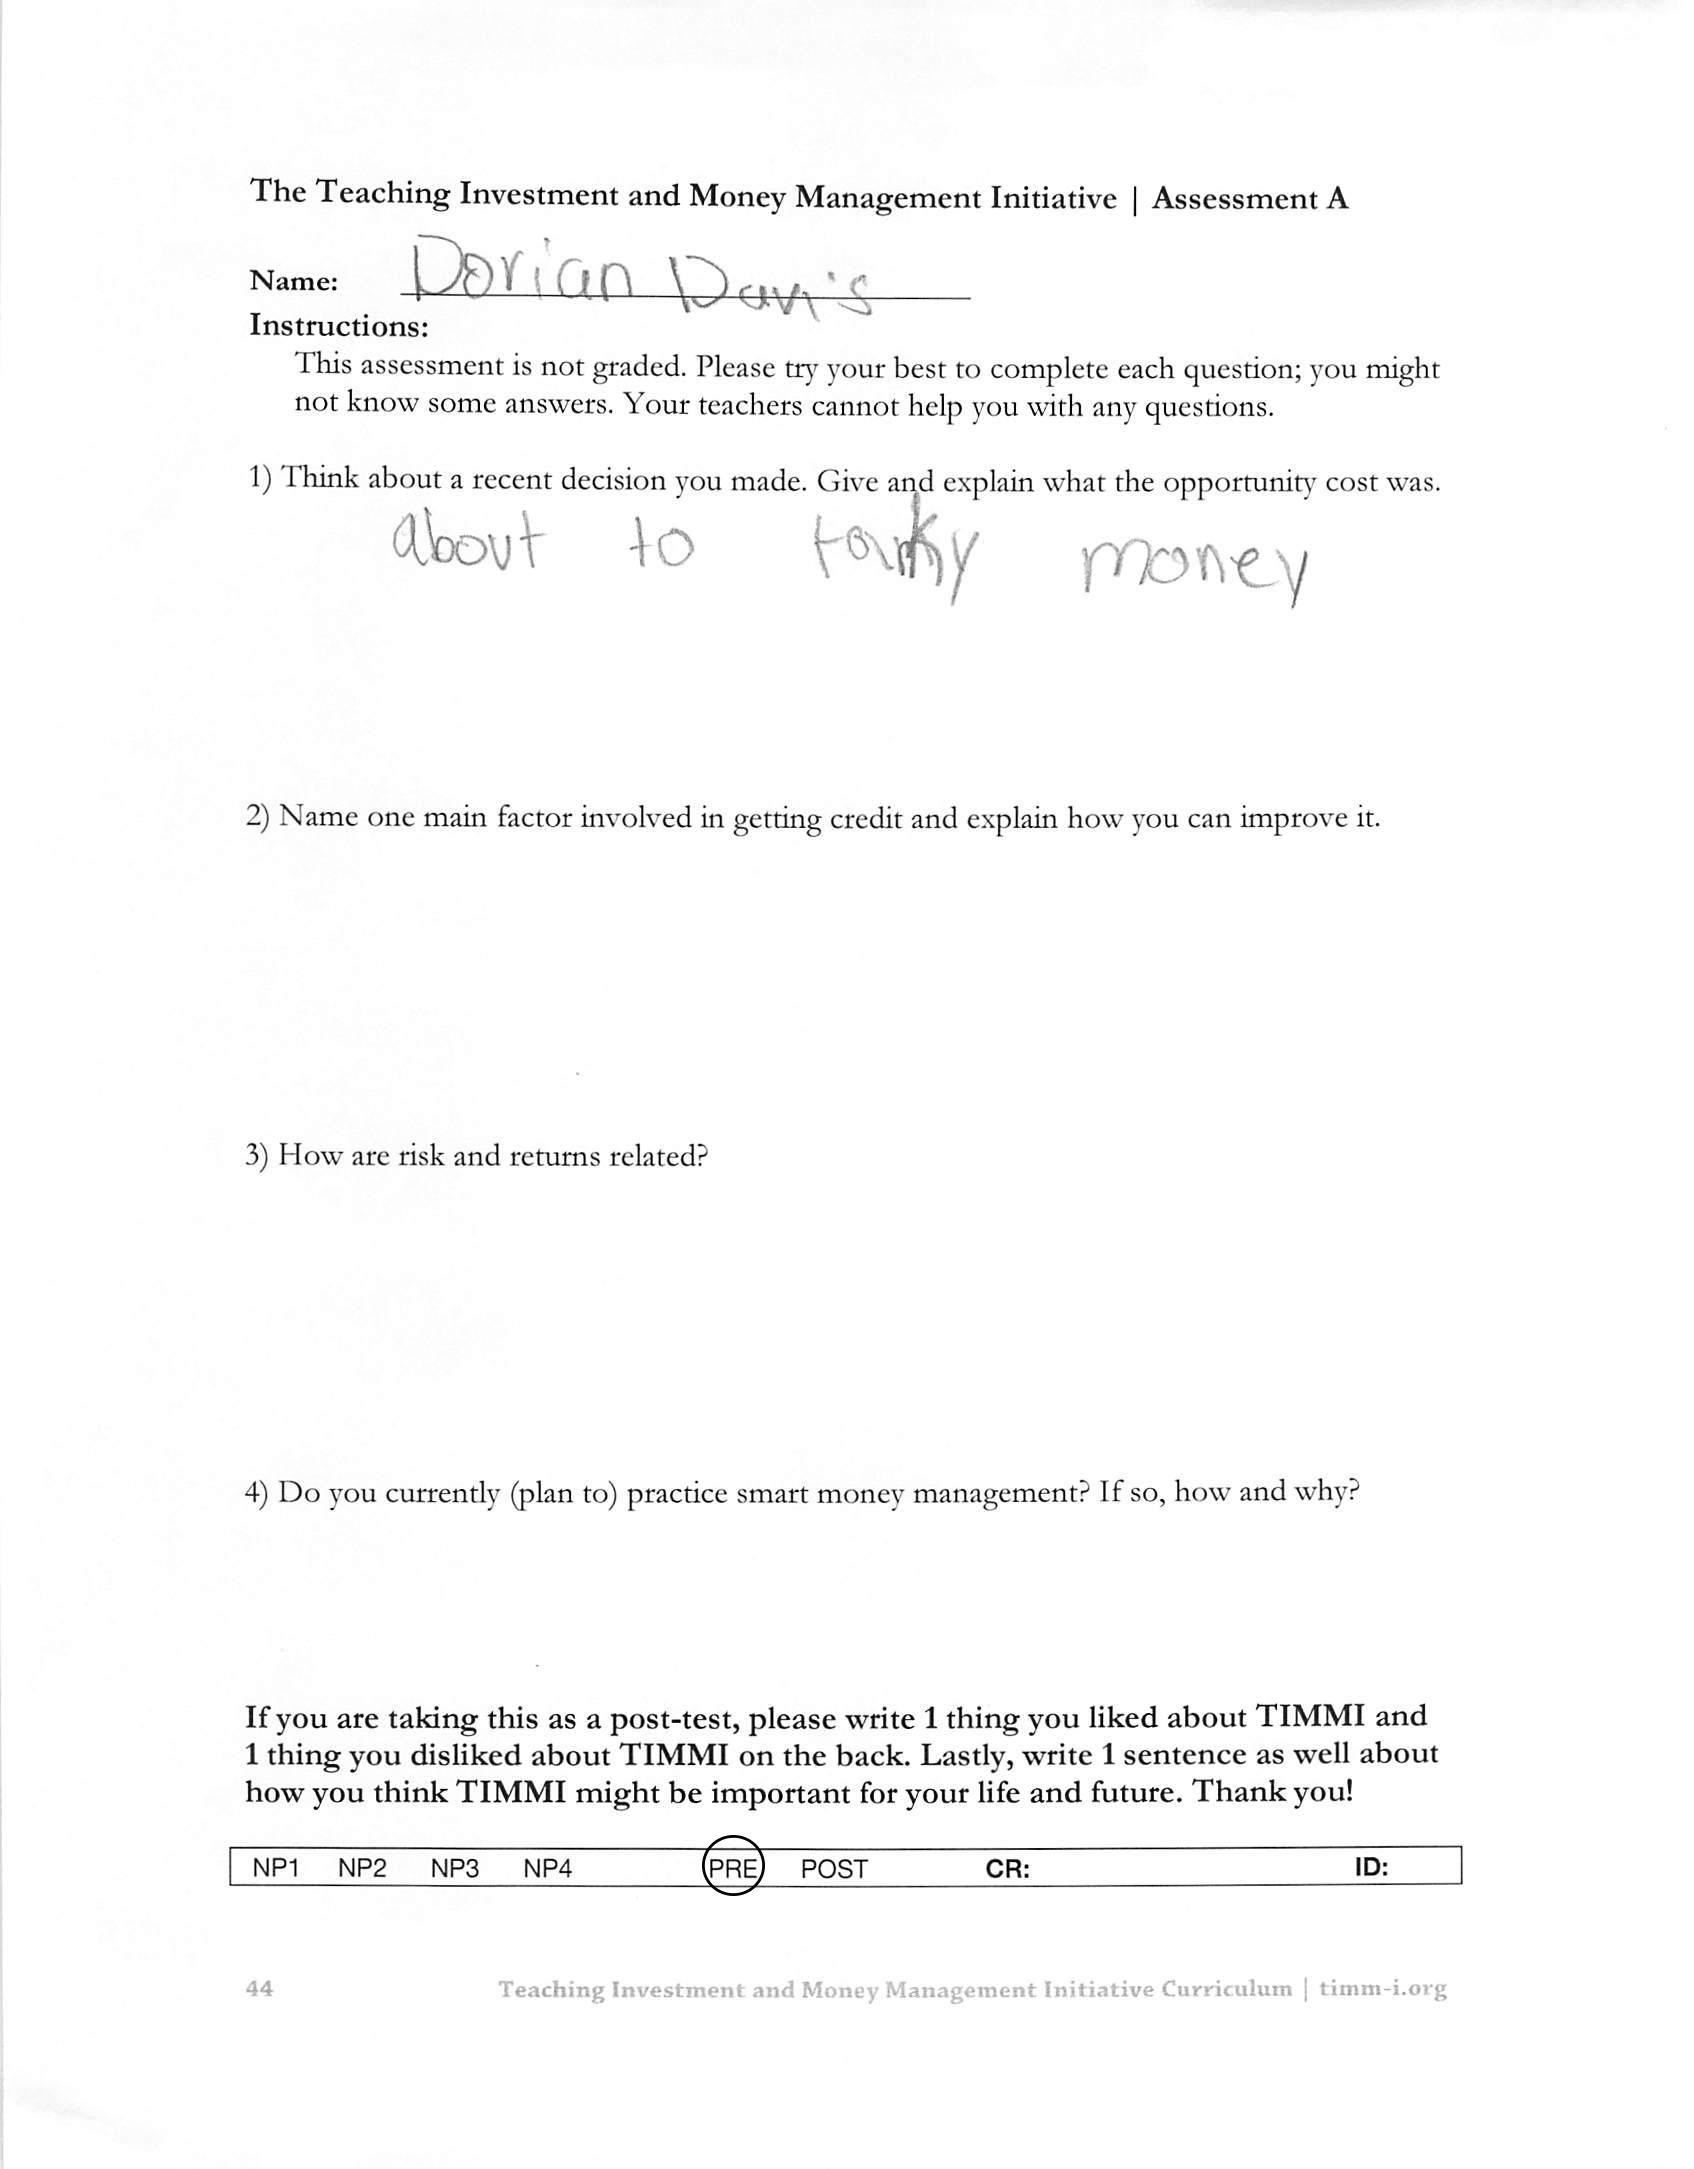 The Teaching Investment and Money Management Initiative | Assessment A
Name: Dorian Davis
Instructions:
This assessment is not graded. Please try your best to complete each question; you might
not know some answers. Your teachers cannot help you with any questions.
1) Think about a recent decision you made. Give and explain what the opportunity cost was.
about to money
2) Name one main factor involved in getting credit and explain how you can improve it.
3) How are risk and returns related?
4) Do you currently (plan to) practice smart money management? If so, how and why?
If you are taking this as a post-test, please write 1 thing you liked about TIMMI and
1 thing you disliked about TIMMI on the back. Lastly, write 1 sentence as well about
how you think TIMMI might be important for your life and future. Thank you!
NP1 NP2 NP3 NP4 PRE POST CR: ID:
44 Teaching Investment and Money Management Initiative Curriculum | timm-i.org